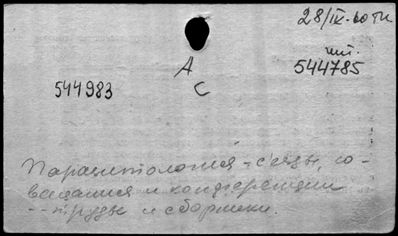 28/IX-60 тк
шт.
544785
A
544983
C
Паразитология - съезды, со-
вещания и конференции
-- труды и сборники.